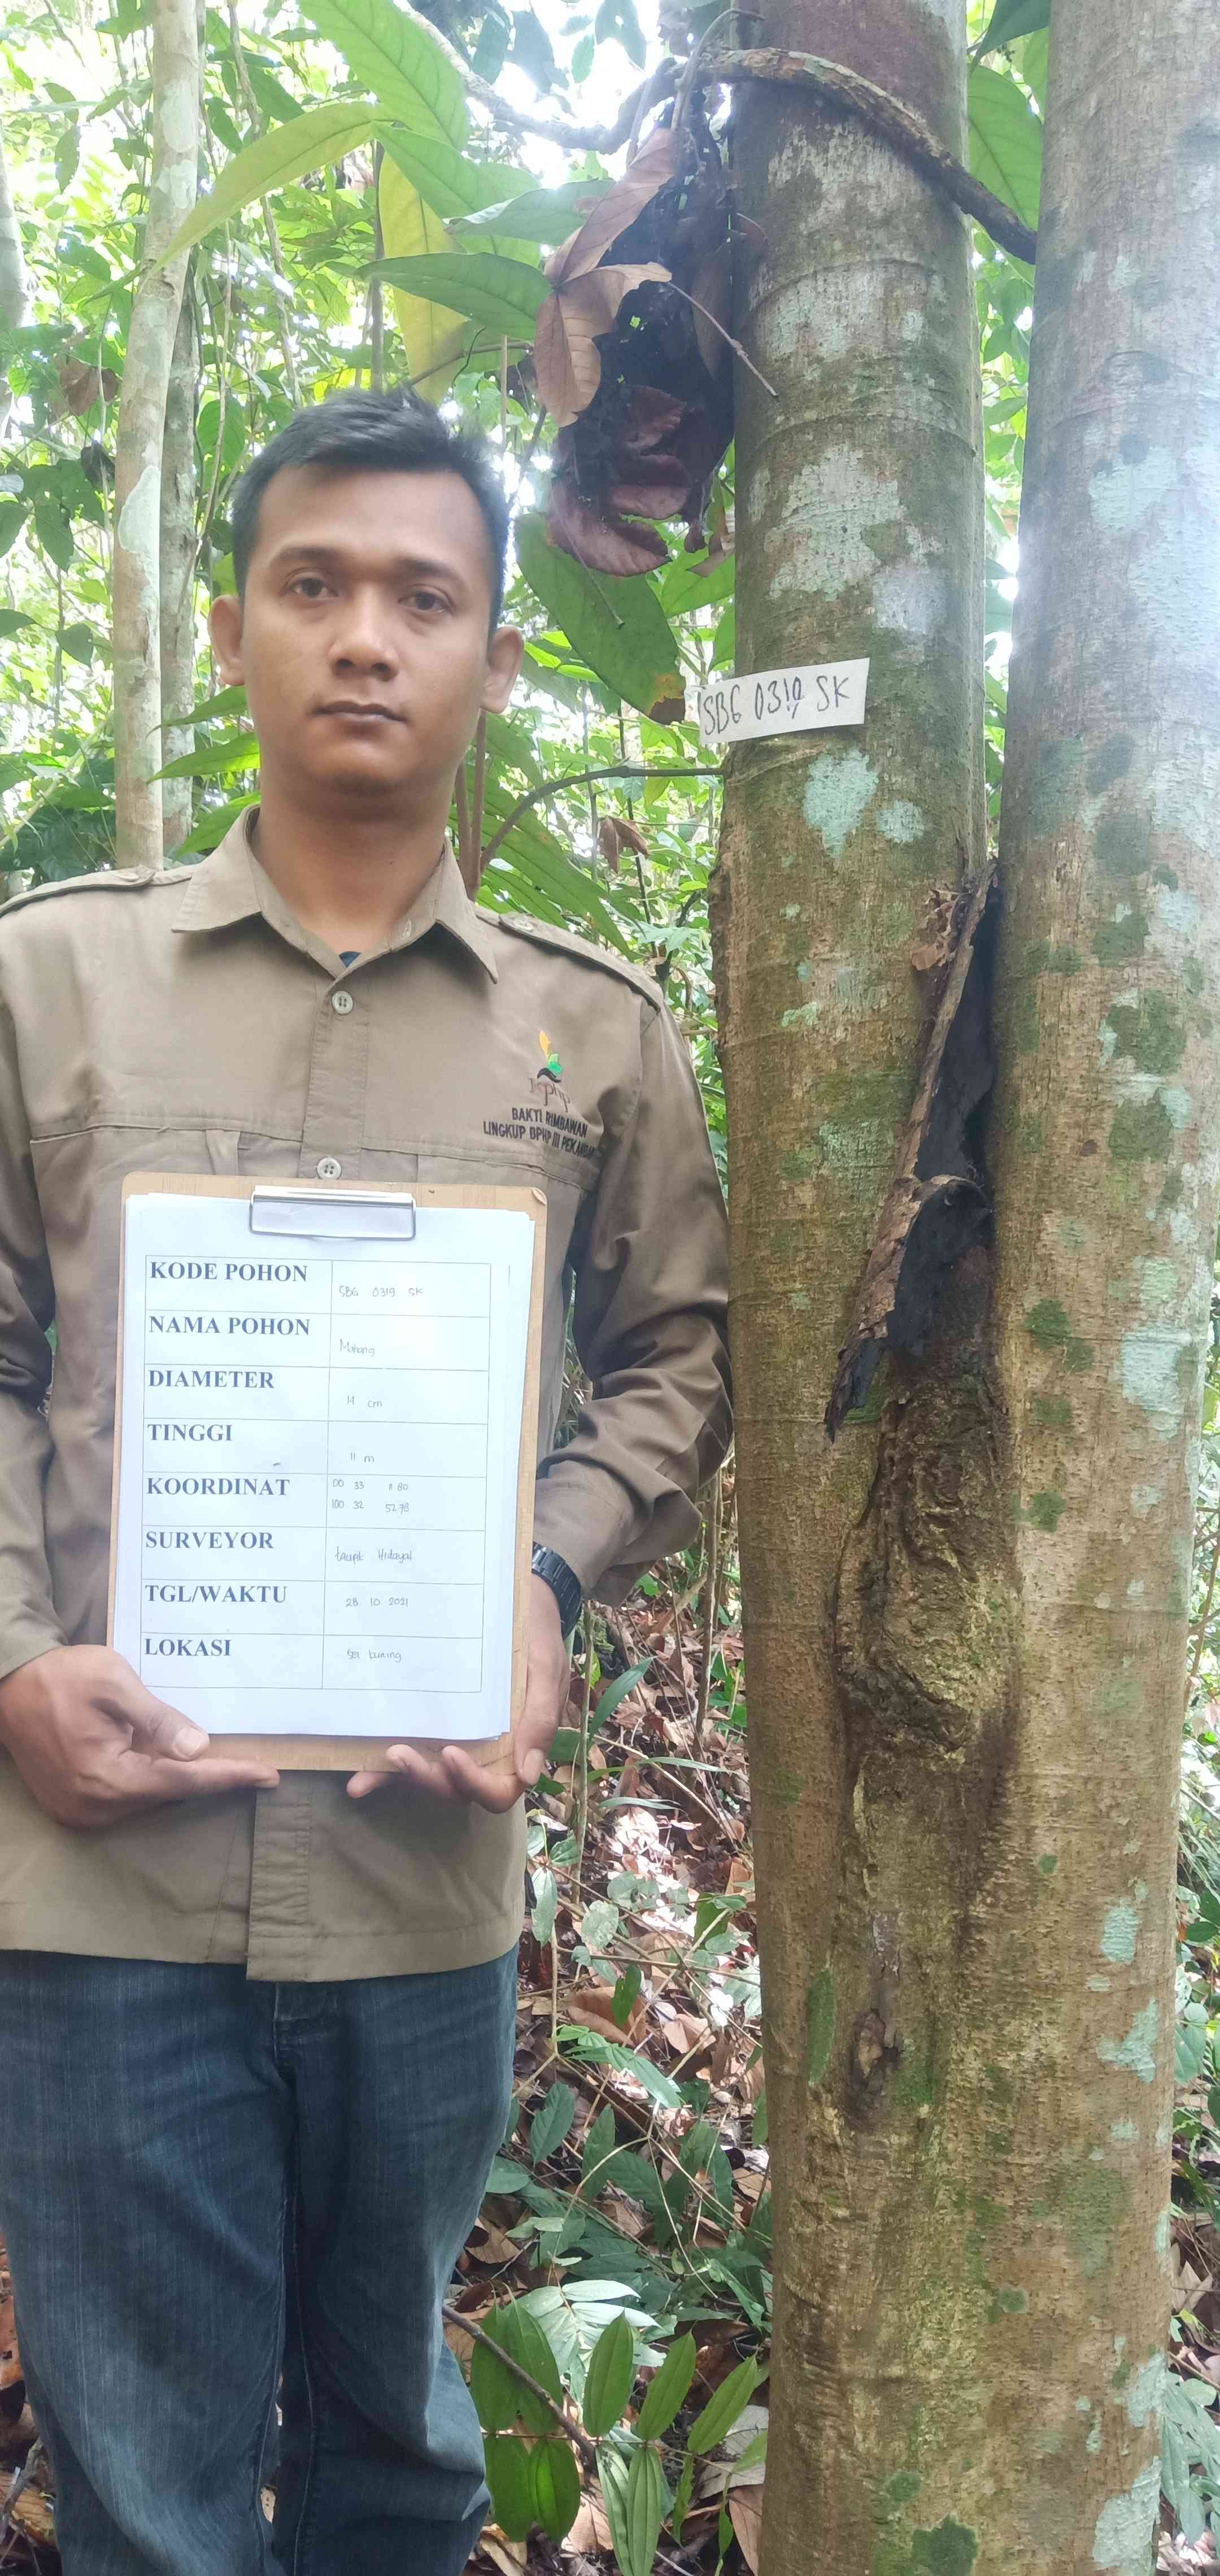 SBG 0319 SK
BAKTI RIMBAWAN
LINGKUP BPHP III PEKANBARU
KODE POHON SBG 0319 SK
NAMA POHON Mahang
DIAMETER 14 cm
TINGGI 11 m
KOORDINAT 00 33 11 80
100 32 52 78
SURVEYOR taupik Hidayat
TGL/WAKTU 28 10 2021
LOKASI sei kuning